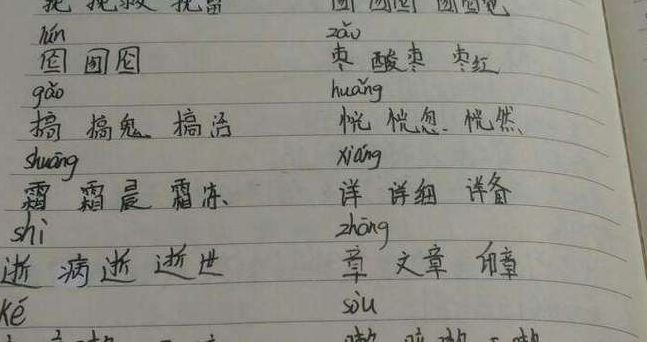 挽 挽救 挽留 圆
lún zǎo
囵 囫囵 枣 酸枣 枣红
gǎo huǎng
搞 搞鬼 搞活 恍 恍忽 恍然
shuāng xiáng
霜 霜晨 霜冻 详 详细 详备
shì zhāng
逝 病逝 逝世 章 文章 印章
Ké sòu